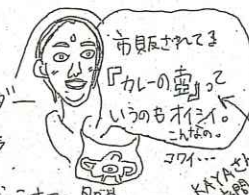 市販されてま
『カレーの壺』って
いうのもオイシイ。
こんなの。
コワイ…
KAYAさん